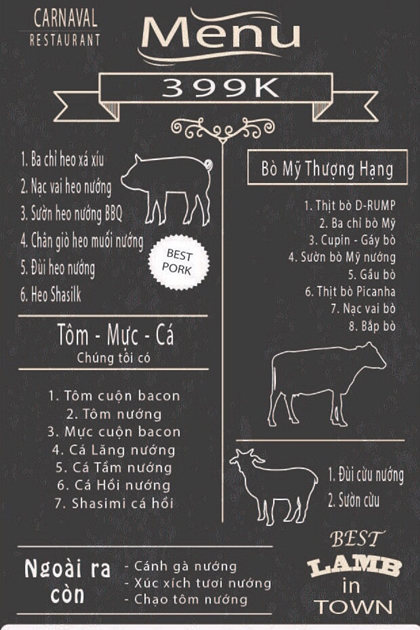 CARNAVAL
RESTAURANT
Menu
399K
1. Ba chỉ heo xá xíu
2. Nạc vai heo nướng
3. Sườn heo nướng BBQ
4. Chân giò heo muối nướng
5. Đùi heo nướng
6. Heo Shasilk
BEST
PORK
Tôm - Mực - Cá
Chúng tôi có
1. Tôm cuộn bacon
2. Tôm nướng
3. Mực cuộn bacon
4. Cá Lăng nướng
5. Cá Tầm nướng
6. Cá Hồi nướng
7. Shasimi cá hồi
Bò Mỹ Thượng Hạng
1. Thịt bò D-RUMP
2. Ba chỉ bò Mỹ
3. Cupin - Gáy bò
4. Sườn bò Mỹ nướng
5. Gầu bò
6. Thịt bò Picanha
7. Nạc vai bò
8. Bắp bò
1. Đùi cừu nướng
2. Sườn cừu
BEST
LAMB
in
TOWN
Ngoài ra
còn
- Cánh gà nướng
- Xúc xích tươi nướng
- Chạo tôm nướng